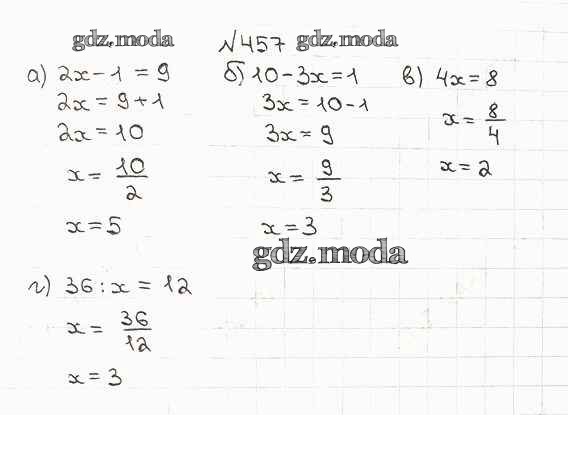 gdz.moda №457 gdz.moda
а) 2x - 1 = 9
2x = 9 + 1
2x = 10
x = 10/2
x = 5
б) 10 - 3x = 1
3x = 10 - 1
3x = 9
x = 9/3
x = 3
в) 4x = 8
x = 8/4
x = 2
gdz.moda
г) 36 : x = 12
x = 36/12
x = 3